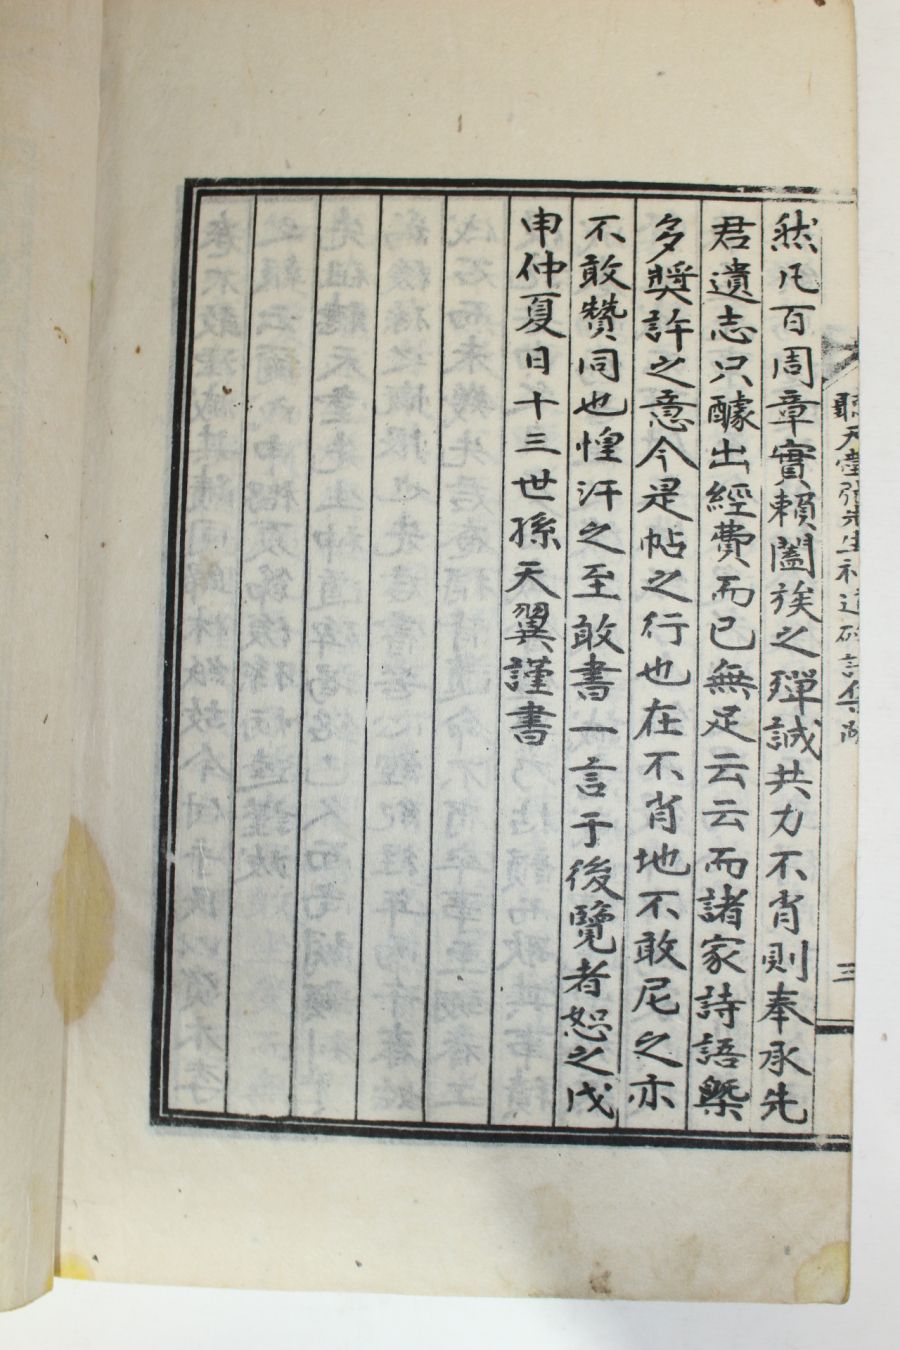 聽天堂張先生神道碑詩集附
三
然凡百周章實賴闔族之殫誠共力不肖則奉承先
君遺志只醵出經費而已無足云云而諸家詩語槩
多奬許之意今是帖之行也在不肖地不敢尼之亦
不敢贊同也惶汗之至敢書一言于後覽者恕之戊
申仲夏日十三世孫天翼謹書